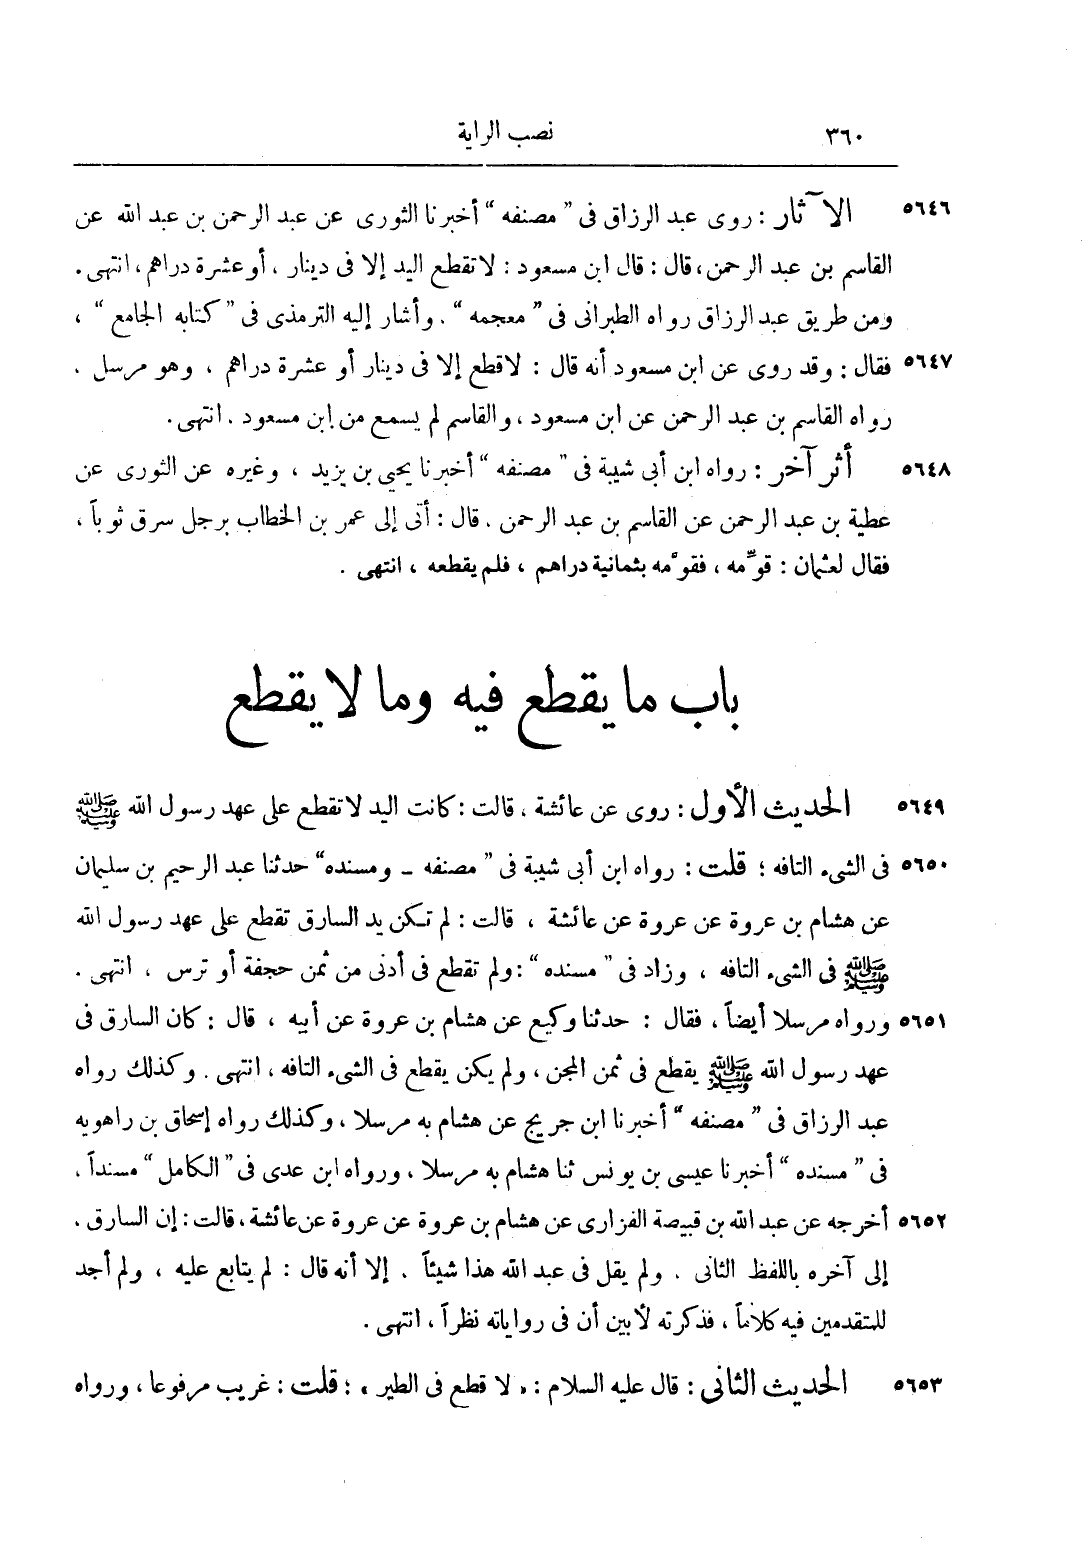 ٣٦٠ نصب الراية
٥٦٤٦ الآثار : روى عبد الرزاق فى ” مصنفه “ أخبرنا الثورى عن عبد الرحمن بن عبد الله عن
القاسم بن عبد الرحمن ، قال : قال ابن مسعود : لا تقطع اليد إلا فى دينار ، أو عشرة دراهم ، انتهى .
ومن طريق عبد الرزاق رواه الطبرانى فى ” معجمه “ . وأشار إليه الترمذى فى ” كتابه الجامع “ ،
٥٦٤٧ فقال : وقد روى عن ابن مسعود أنه قال : لا قطع إلا فى دينار أو عشرة دراهم ، وهو مرسل .
رواه القاسم بن عبد الرحمن عن ابن مسعود ، والقاسم لم يسمع من ابن مسعود . انتهى .
٥٦٤٨ أثر آخر : رواه ابن أبى شيبة فى ” مصنفه “ أخبرنا يحيى بن يزيد ، وغيره عن الثورى عن
عطية بن عبد الرحمن عن القاسم بن عبد الرحمن . قال : أتى إلى عمر بن الخطاب برجل سرق ثوباً ،
فقال لعثمان : قوِّمه ، فقوَّمه بثمانية دراهم ، فلم يقطعه ، انتهى .
باب ما يقطع فيه وما لا يقطع
٥٦٤٩ الحديث الأول : روى عن عائشة ، قالت : كانت اليد لا تقطع على عهد رسول الله ﷺ
٥٦٥٠ فى الشىء التافه ؛ قلت : رواه ابن أبى شيبة فى ” مصنفه - ومسنده “ حدثنا عبد الرحيم بن سليمان
عن هشام بن عروة عن عروة عن عائشة ، قالت : لم تكن يد السارق تقطع على عهد رسول الله
ﷺ فى الشىء التافه ، وزاد فى ” مسنده “ : ولم تقطع فى أدنى من ثمن حجفة أو ترس ، انتهى .
٥٦٥١ ورواه مرسلا أيضاً ، فقال : حدثنا وكيع عن هشام بن عروة عن أبيه ، قال : كان السارق فى
عهد رسول الله ﷺ يقطع فى ثمن المجن ، ولم يكن يقطع فى الشىء التافه ، انتهى . وكذلك رواه
عبد الرزاق فى ” مصنفه “ أخبرنا ابن جريج عن هشام به مرسلا ، وكذلك رواه إسحاق بن راهويه
فى ” مسنده “ أخبرنا عيسى بن يونس ثنا هشام به مرسلا ، ورواه ابن عدى فى ” الكامل “ مسنداً ،
٥٦٥٢ أخرجه عن عبد الله بن قبيصة الفزارى عن هشام بن عروة عن عروة عن عائشة ، قالت : إن السارق .
إلى آخره باللفظ الثانى . ولم يقل فى عبد الله هذا شيئاً . إلا أنه قال : لم يتابع عليه ، ولم أجد
للمتقدمين فيه كلاماً ، فذكرته لأبين أن فى رواياته نظراً ، انتهى .
٥٦٥٣ الحديث الثانى : قال عليه السلام : « لا قطع فى الطير » ؛ قلت : غريب مرفوعا ، ورواه